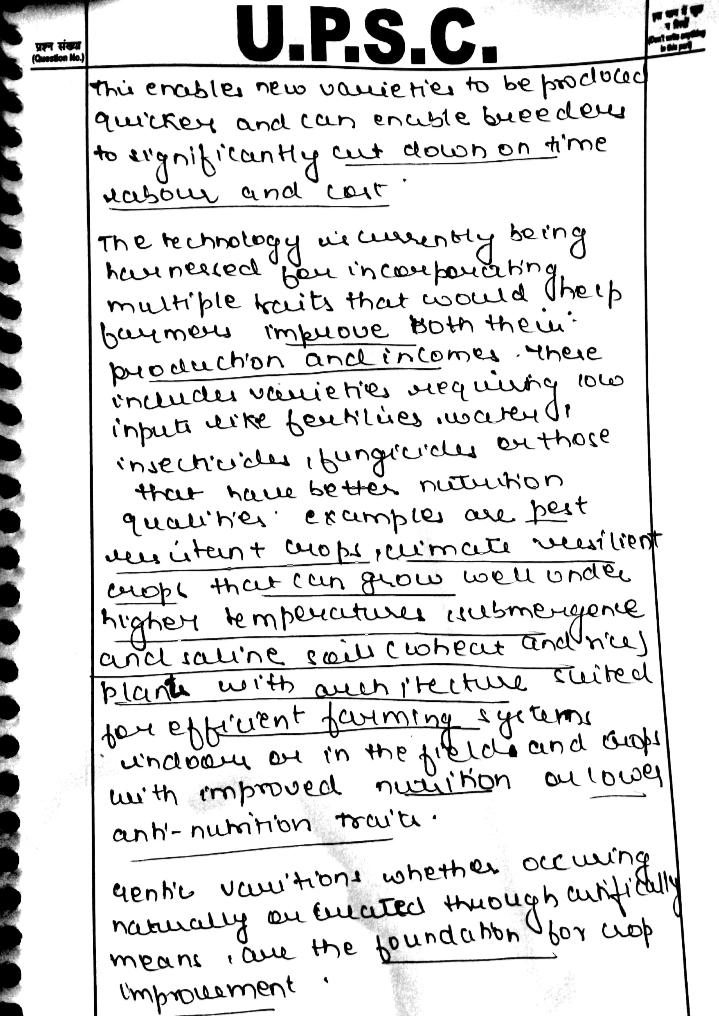 प्रश्न संख्या
(Question No.)
U.P.S.C.
(Don't write anything
in this part)
This enables new varieties to be produced
quicker and can enable breeders
to significantly cut down on time
labour and cost.
The technology is currently being
harnessed for incorporating
multiple traits that would help
farmers improve both their
production and incomes. These
includes varieties requiring low
inputs like fertilizes, water,
insecticides, fungicides or those
that have better nutrition
qualities. examples are pest
resistant crops, climate resilient
crops that can grow well under
higher temperatures, submergence
and saline soils (wheat and rice)
plants with architecture suited
for efficient farming systems
indoors or in the fields and crops
with improved nutrition or lower
anti-nutrition traits.
Genetic variations whether occuring
naturally or created through artifically
means, are the foundation for crop
improvement.